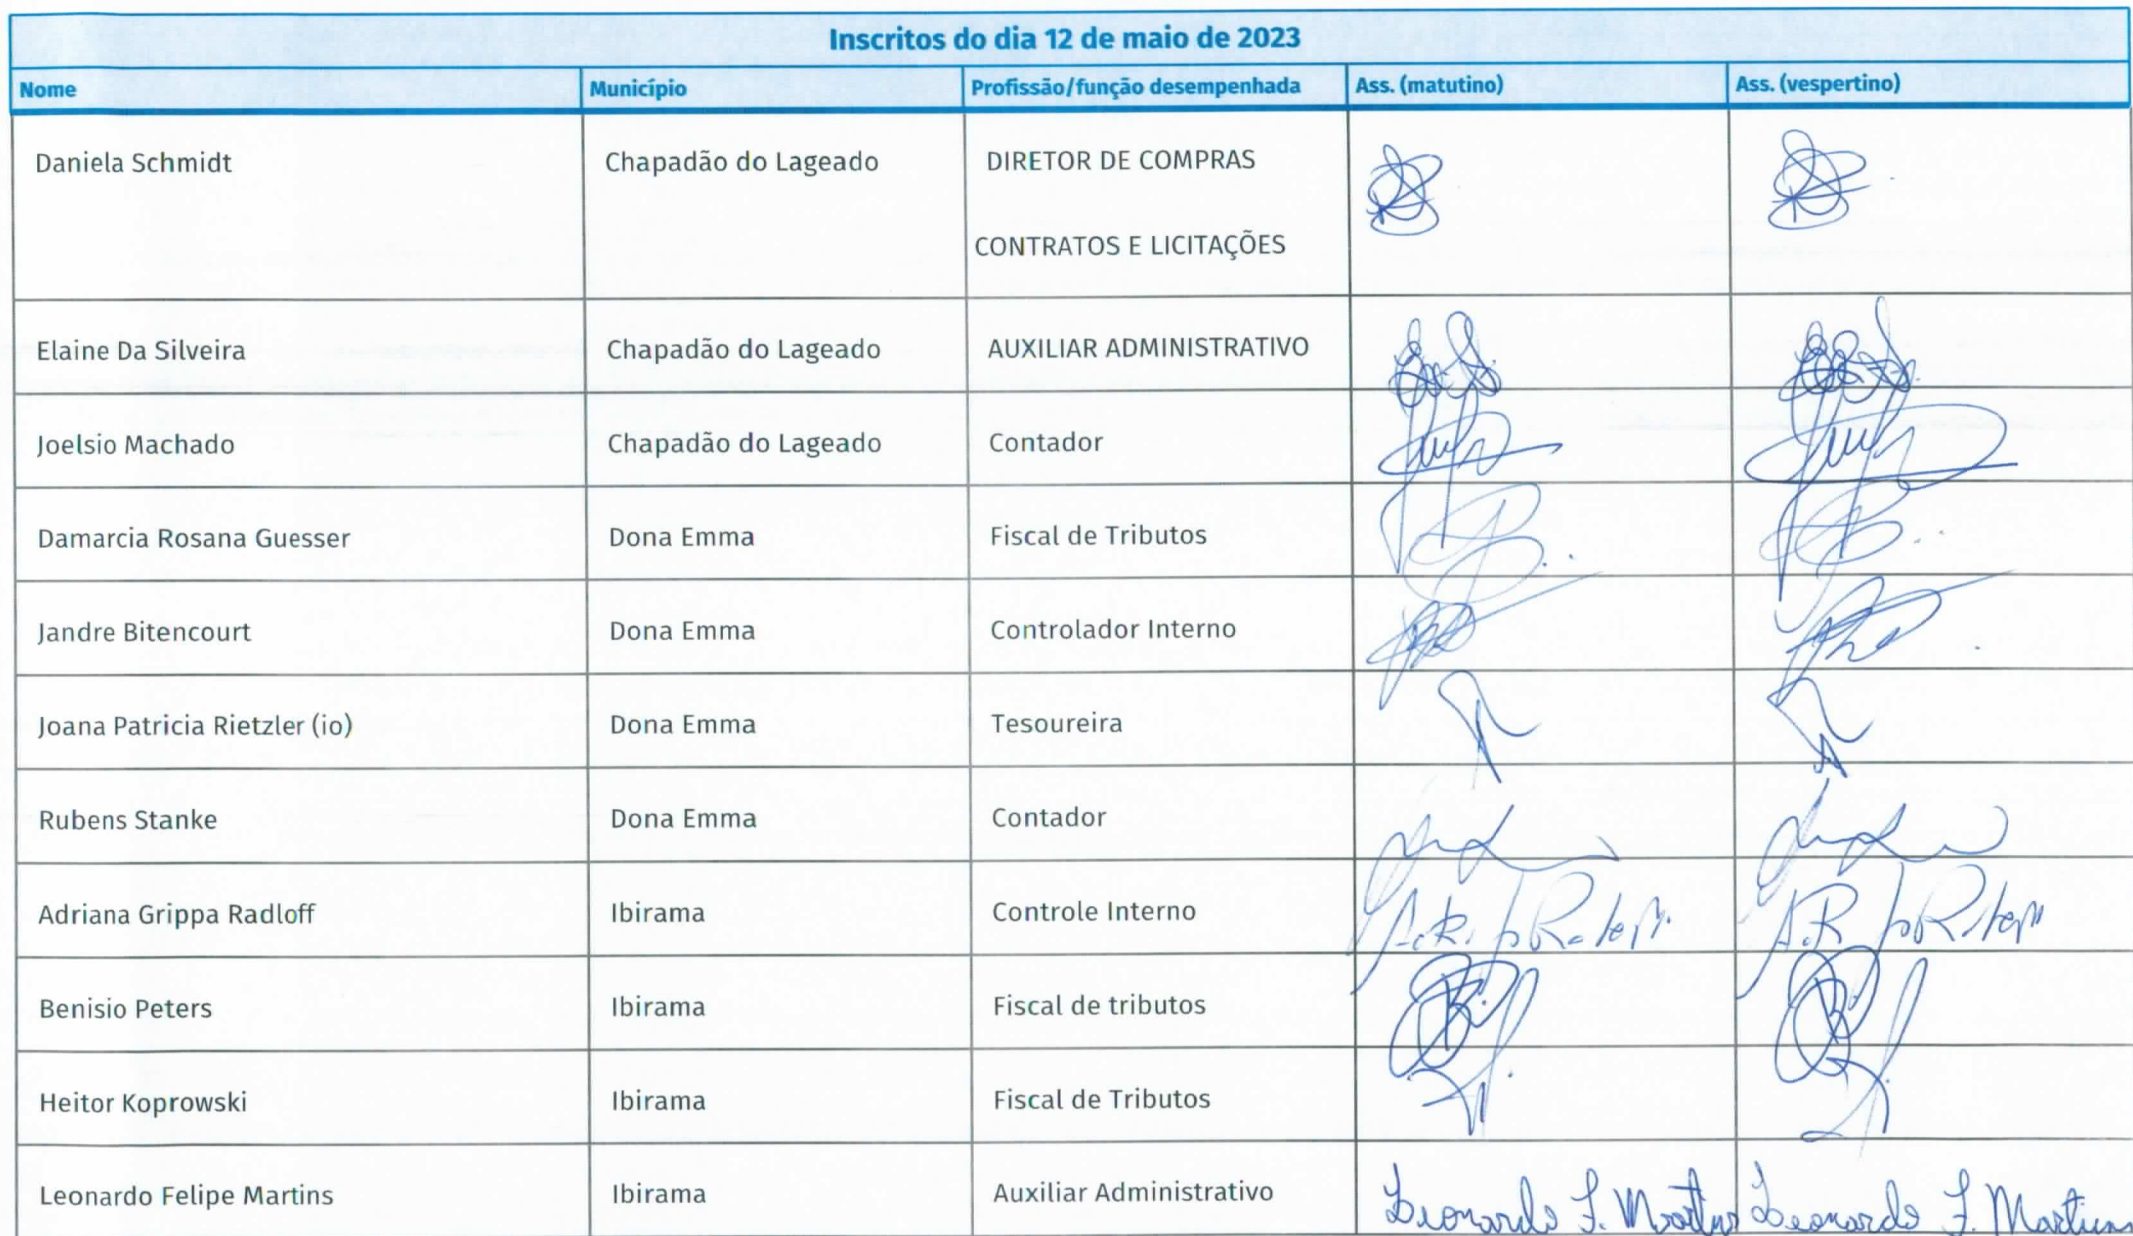 Inscritos do dia 12 de maio de 2023
Nome Município Profissão/função desempenhada Ass. (matutino) Ass. (vespertino)
Daniela Schmidt Chapadão do Lageado DIRETOR DE COMPRAS
CONTRATOS E LICITAÇÕES
Elaine Da Silveira Chapadão do Lageado AUXILIAR ADMINISTRATIVO
Joelsio Machado Chapadão do Lageado Contador
Damarcia Rosana Guesser Dona Emma Fiscal de Tributos
Jandre Bitencourt Dona Emma Controlador Interno
Joana Patricia Rietzler (io) Dona Emma Tesoureira
Rubens Stanke Dona Emma Contador
Adriana Grippa Radloff Ibirama Controle Interno
Benisio Peters Ibirama Fiscal de tributos
Heitor Koprowski Ibirama Fiscal de Tributos
Leonardo Felipe Martins Ibirama Auxiliar Administrativo Leonardo F. Martins Leonardo F. Martins